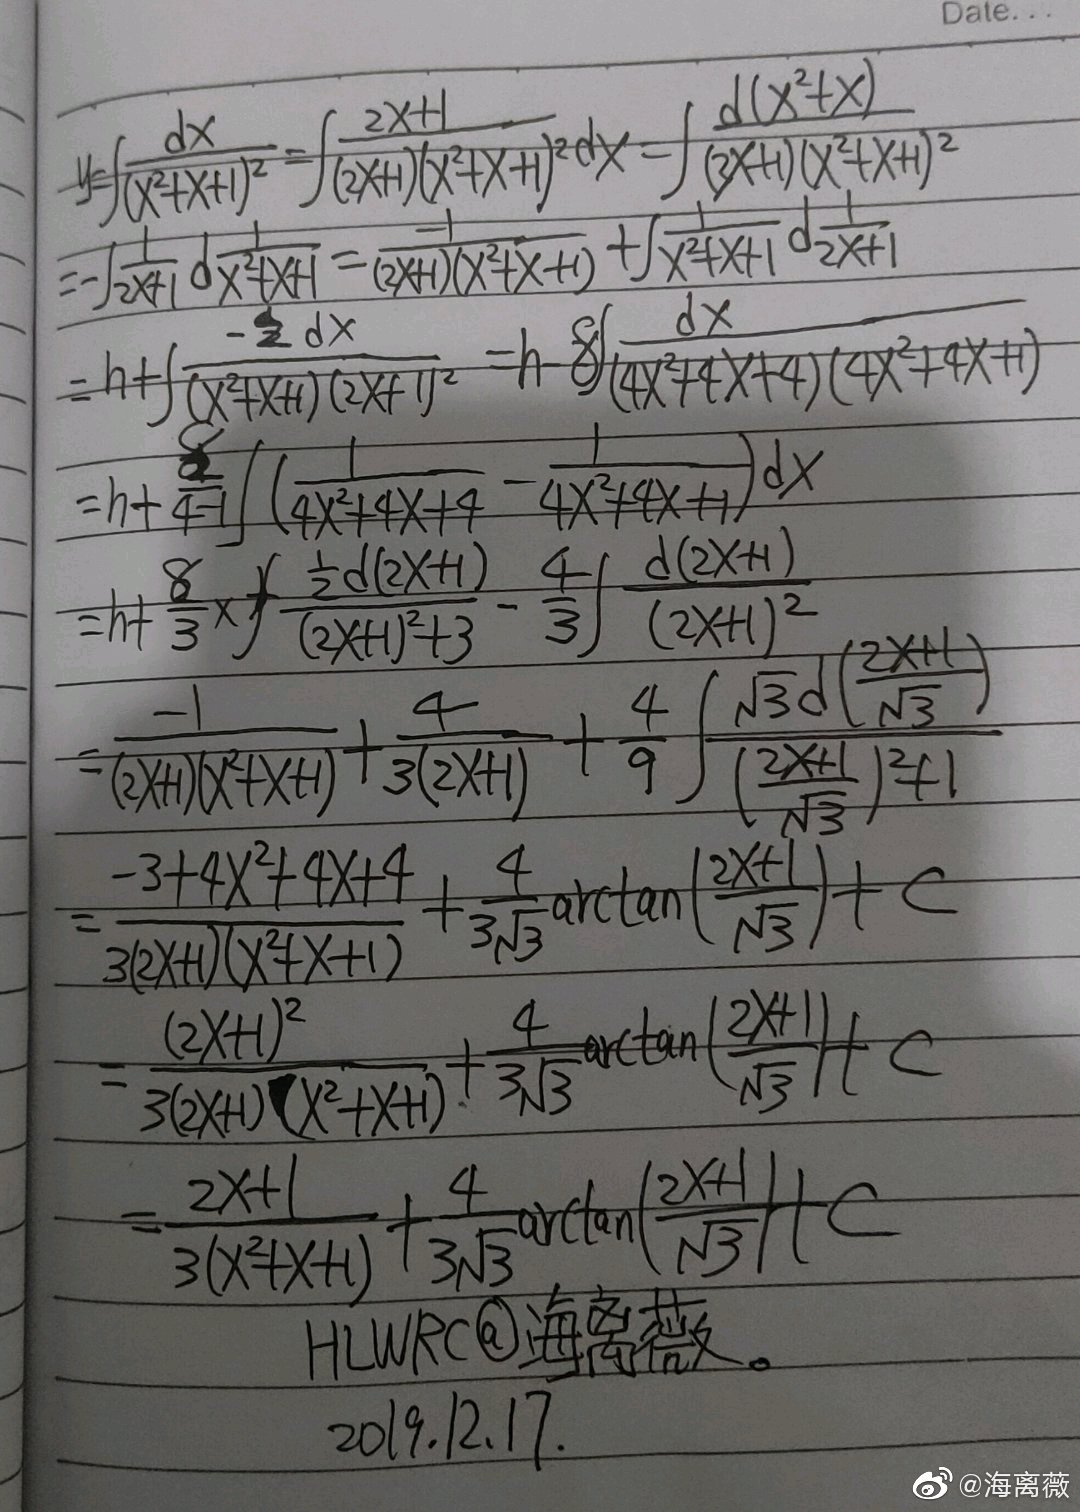 Date...
y=∫dx/(x²+x+1)²=∫(2x+1)/((2x+1)(x²+x+1)²)dx=∫d(x²+x)/((2x+1)(x²+x+1)²)
=-∫1/(2x+1) d 1/(x²+x+1)=-1/((2x+1)(x²+x+1))+∫1/(x²+x+1) d 1/(2x+1)
=h+∫-2dx/((x²+x+1)(2x+1)²)=h-8∫dx/((4x²+4x+4)(4x²+4x+1))
=h+8/(4-1)∫(1/(4x²+4x+4)-1/(4x²+4x+1))dx
=h+8/3×∫½d(2x+1)/((2x+1)²+3)-4/3∫d(2x+1)/(2x+1)²
=-1/((2x+1)(x²+x+1))+4/(3(2x+1))+4/9∫√3d((2x+1)/√3)/(((2x+1)/√3)²+1)
=(-3+4x²+4x+4)/(3(2x+1)(x²+x+1))+4/(3√3)arctan((2x+1)/√3)+C
=(2x+1)²/(3(2x+1)(x²+x+1))+4/(3√3)arctan((2x+1)/√3)+C
=(2x+1)/(3(x²+x+1))+4/(3√3)arctan((2x+1)/√3)+C
HLWRC@海离薇。
2019.12.17.
@海离薇